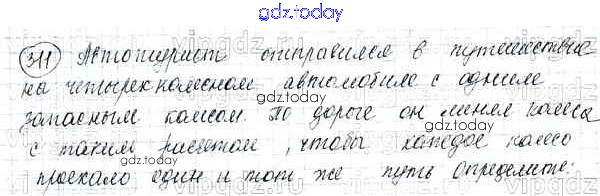 gdz.today
311 Автотурист отправился в путешествие
на четырехколесном автомобиле с одним
gdz.today
запасным колесом. По дороге он менял колеса
с таким расчетом, чтобы каждое колесо
gdz.today
проехало один и тот же путь. Определите: